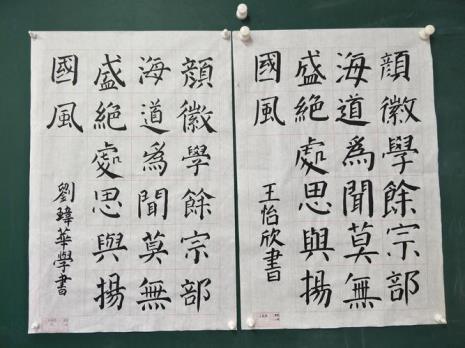 顔徽學餘宗部
海道為聞莫無
盛絕處思與揚
國風
劉瑋華學書
顔徽學餘宗部
海道為聞莫無
盛絕處思與揚
國風
王怡欣書